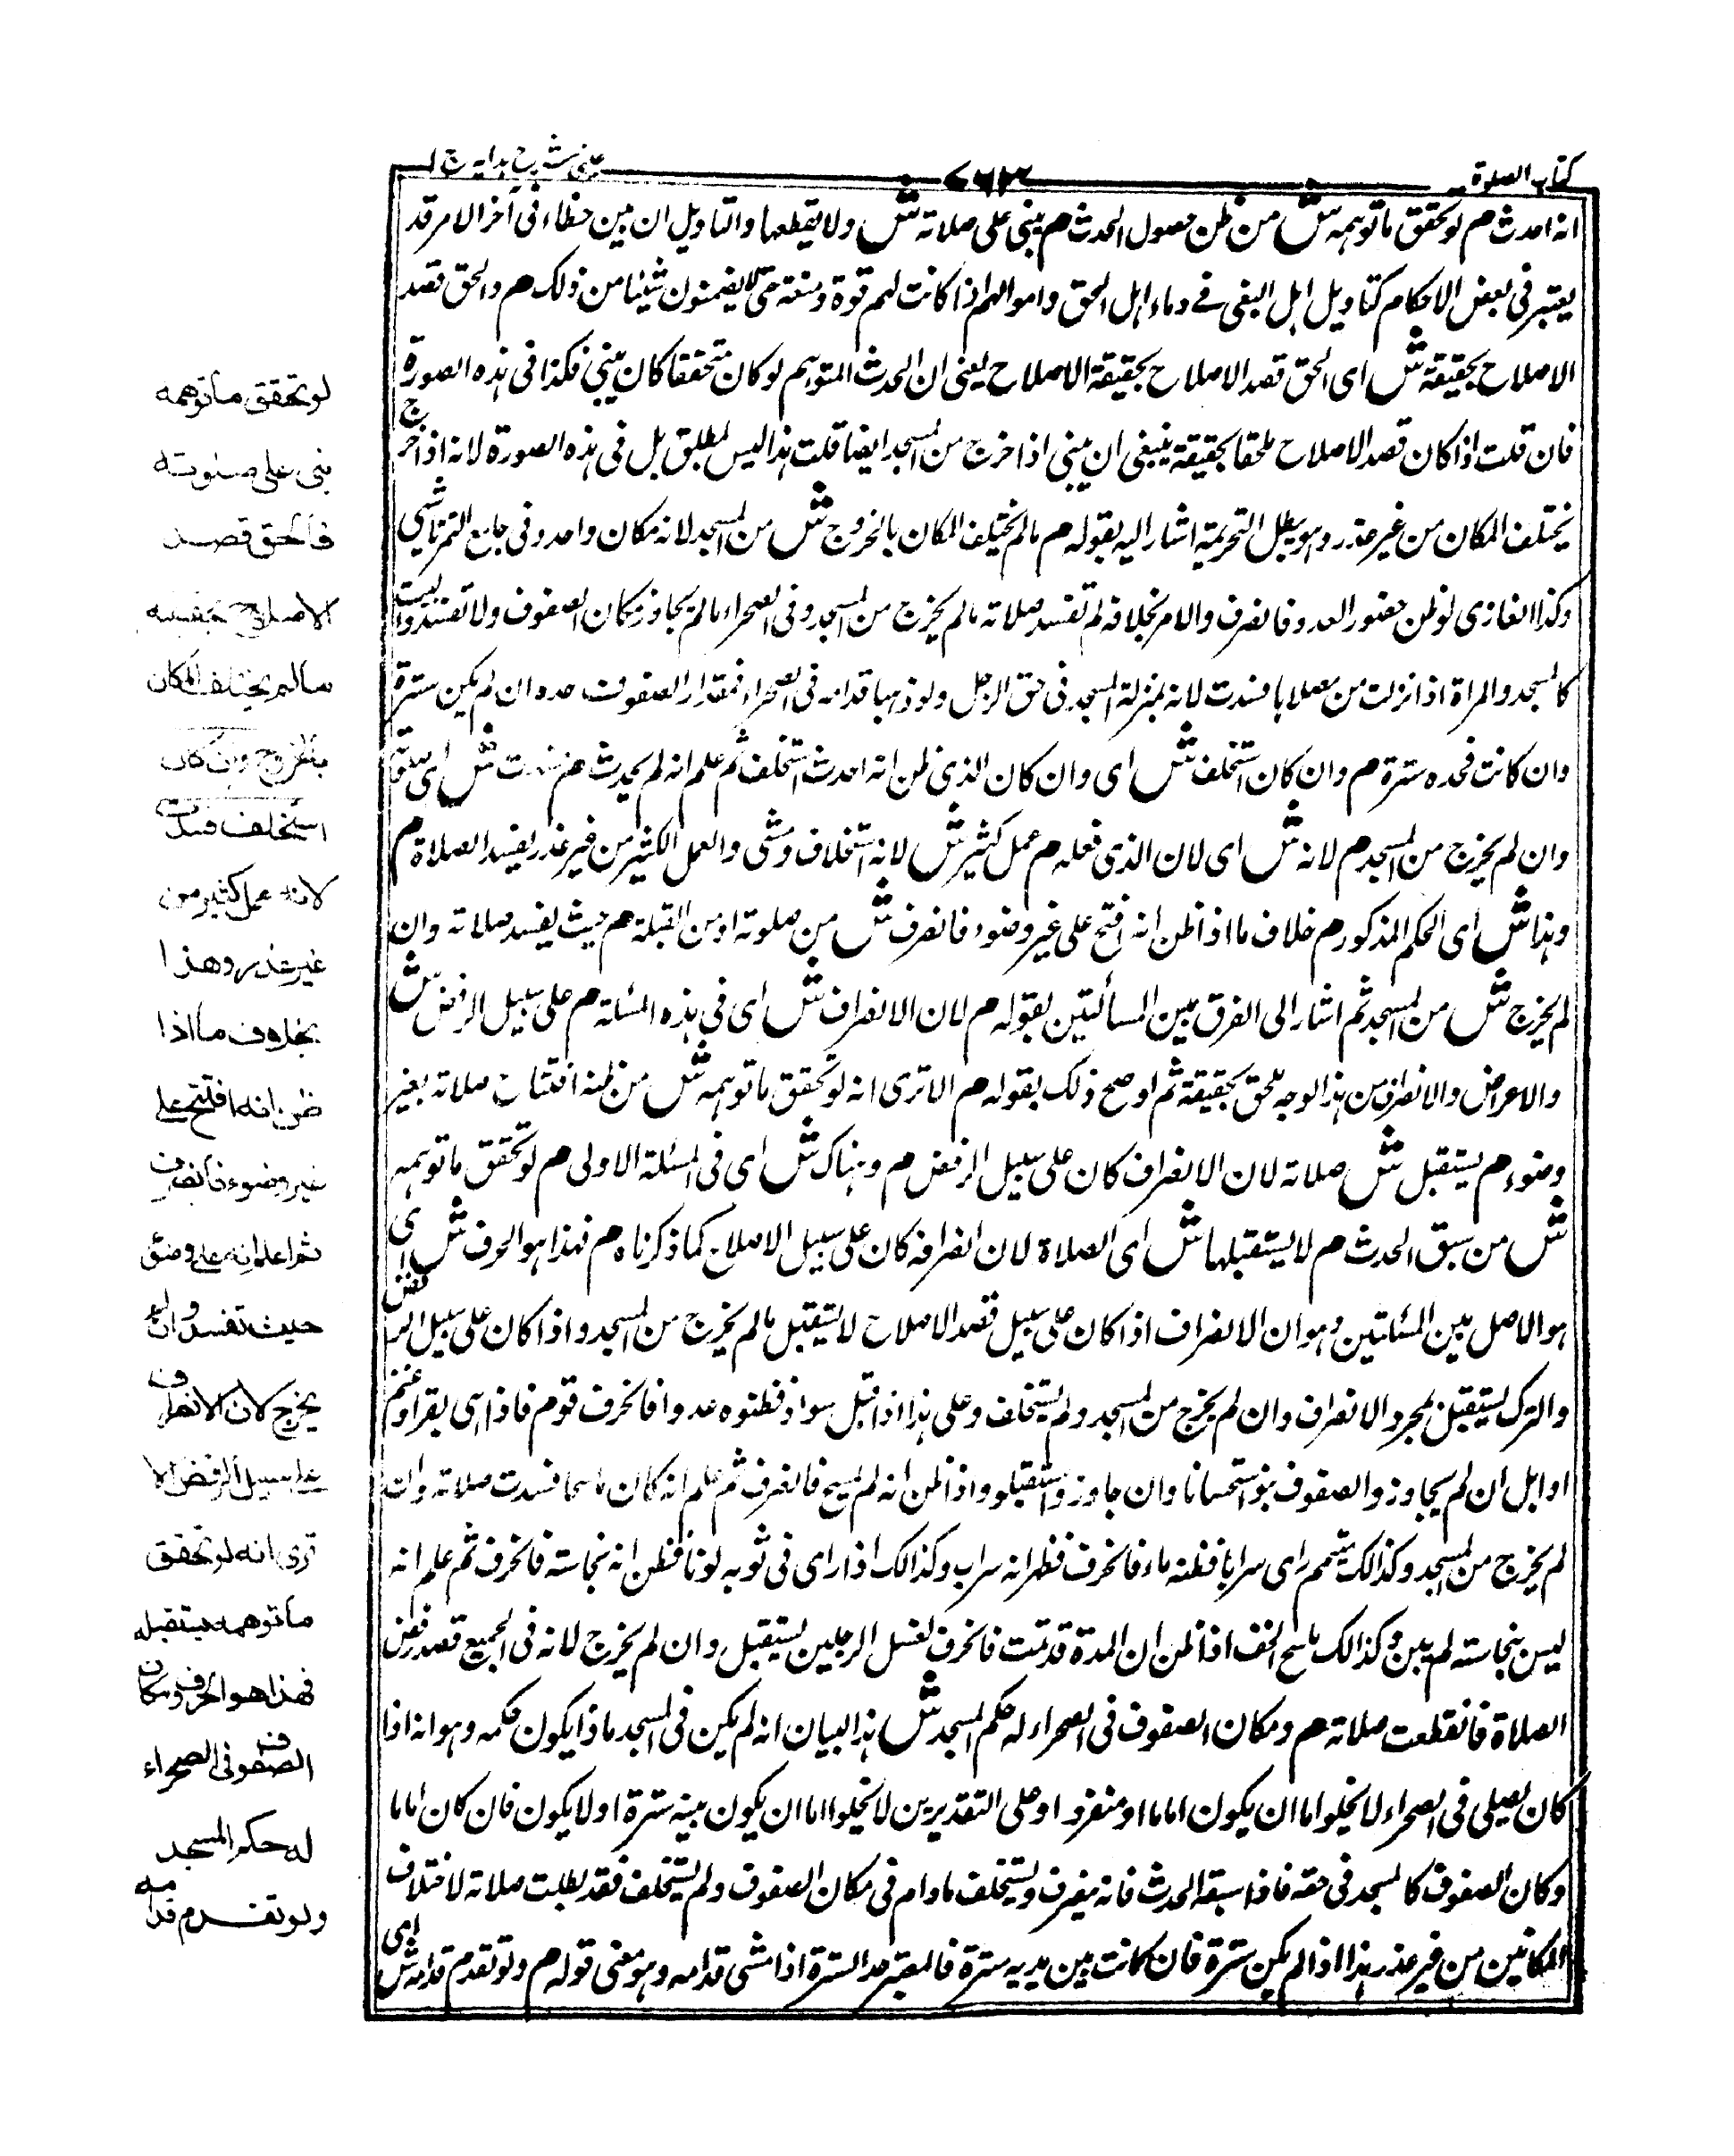 كتاب الصلوة
٧٦٣
عينى شرح هدايه ج ا
انه احدث م لو تحقق ما توهمه ش من ظن حصول الحدث م بنى على صلاته ش ولا يقطعها والتاويل ان بين خطاءه فى آخر الامر قد
يعتبر فى بعض الاحكام كتاويل اهل البغى فے دماء اهل الحق واموالهم اذا كانت لهم قوة ومنعة حتى لا يضمنون شيئا من ذلك م والحق قصد
الاصلاح بحقيقة ش اى الحق قصد الاصلاح بحقيقة الاصلاح يعنى ان الحدث المتوهم لو كان متحققا كان يبنى فكذا فى هذه الصورة
فان قلت اذا كان قصد الاصلاح ملحقا بحقيقة ينبغى ان يبنى اذا خرج من المسجد ايضا قلت هذا ليس بمطلق بل فى هذه الصورة لانه اذا خرج
يختلف المكان من غير عذر وهو يبطل التحريمة اشار اليه بقوله م ما لم يختلف المكان بالخروج ش من المسجد لانه مكان واحد وفى جامع التمرتاشى
وكذا الغازى لو ظن حضور العدو فانصرف والامر بخلافه لم تفسد صلاته ما لم يخرج من المسجد وفى الصحراء ما لم يجاوز مكان الصفوف ولا تفسد والبيت
كالمسجد والمراة اذا نزلت من مصلاها فسدت لانه بمنزلة المسجد فى حق الرجل ولو ذهبا قدامه فى الصحراء فمقدار الصفوف حده ان لم يكن سترة
وان كانت فحده سترة م وان كان استخلف ش اى وان كان الذى ظن انه احدث استخلف ثم علم انه لم يحدث م فسدت ش اى صلاته
وان لم يخرج من المسجد م لانه ش اى لان الذى فعله م عمل كثير ش لانه استخلاف ومشى والعمل الكثير من غير عذر يفسد الصلاة م
وهذا ش اى الحكم المذكور م خلاف ما اذا ظن انه افتتح على غير وضوء فانصرف ش من صلوته او من القبلة م حيث يفسد صلاته وان
لم يخرج ش من المسجد ثم اشار الى الفرق بين المسألتين بقوله م لان الانصراف ش اى فى هذه المسئلة م على سبيل الرفض ش
والاعراض والانصراف من هذا الوجه ملحق بحقيقة ثم اوضح ذلك بقوله م الا ترى انه لو تحقق ما توهمه ش من ظنه افتتاح صلاته بغير
وضوء م يستقبل ش صلاته لان الانصراف كان على سبيل الرفض م وهناك ش اى فى المسئلة الاولى م لو تحقق ما توهمه
ش من سبق الحدث م لا يستقبلها ش اى الصلاة لان انصرافه كان على سبيل الاصلاح كما ذكرناه م فهذا هو الحرف ش اى
هو الاصل بين المسئلتين وهو ان الانصراف اذا كان على سبيل قصد الاصلاح لا يستقبل ما لم يخرج من المسجد واذا كان على سبيل الرفض
والترك يستقبل بمجرد الانصراف وان لم يخرج من المسجد ولم يستخلف وعلى هذا اذا اقبل سواد فظنوه عدوا فانحرف قوم فاذا هى بقر او غنم
او ابل ان لم يجاوزوا الصفوف بنوا استحسانا وان جاوزوا استقبلوا واذا ظن انه لم يمسح فانصرف ثم علم انه كان ماسحا فسدت صلاته وان
لم يخرج من المسجد وكذلك متيمم راى سرابا فظنه ماء فانحرف فظهر انه سراب وكذالك اذا راى فى ثوبه لونا فظن انه نجاسته فانحرف ثم علم انه
ليس بنجاسته لم يبن وكذالك ماسح الخف اذا ظن ان المدة قد تمت فانحرف لغسل الرجلين يستقبل وان لم يخرج لانه فى الجميع قصد رفض
الصلاة فانقطعت صلاته م ومكان الصفوف فى الصحراء له حكم المسجد ش هذا لبيان انه لم يكن فى المسجد ماذا يكون حكمه وهو انه اذا
كان يصلى فى الصحراء لا يخلوا ما ان يكون اماما او منفرد او على التقديرين لا يخلوا اما ان يكون بينه سترة او لا يكون فان كان اماما
وكان الصفوف كالمسجد فى حقه فاذا سبقه الحدث فانه ينصرف ويستخلف ما دام فى مكان الصفوف ولم يستخلف فقد بطلت صلاته لاختلاف
المكانين من غير عذر هذا اذا لم يكن سترة فان كانت بين يديه سترة فالمعتبر حد السترة اذا مشى قدامه وهو معنى قوله م ولو تقدم قدامه ش اى
لو تحقق ما توهمه
بنى على صلوته
فألحق قصد
الاصلاح بحقيقته
ما لم يختلف المكان
بالخروج وان كان
استخلف فسدت
لانه عمل كثير من
غير عذر وهذا
بخلاف ما اذا
ظن انه افتتح على
غير وضوء فانصرف
ثم اعلم انه على وضؤ
حيث تفسد وان لم
يخرج لان الانصراف
على سبيل الرفض الا
ترى انه لو تحقق
ما توهمه يستقبله
فهذا هو الحرف ومكان
الصفوف فى الصحراء
له حكم المسجد
ولو تقدم قدامه